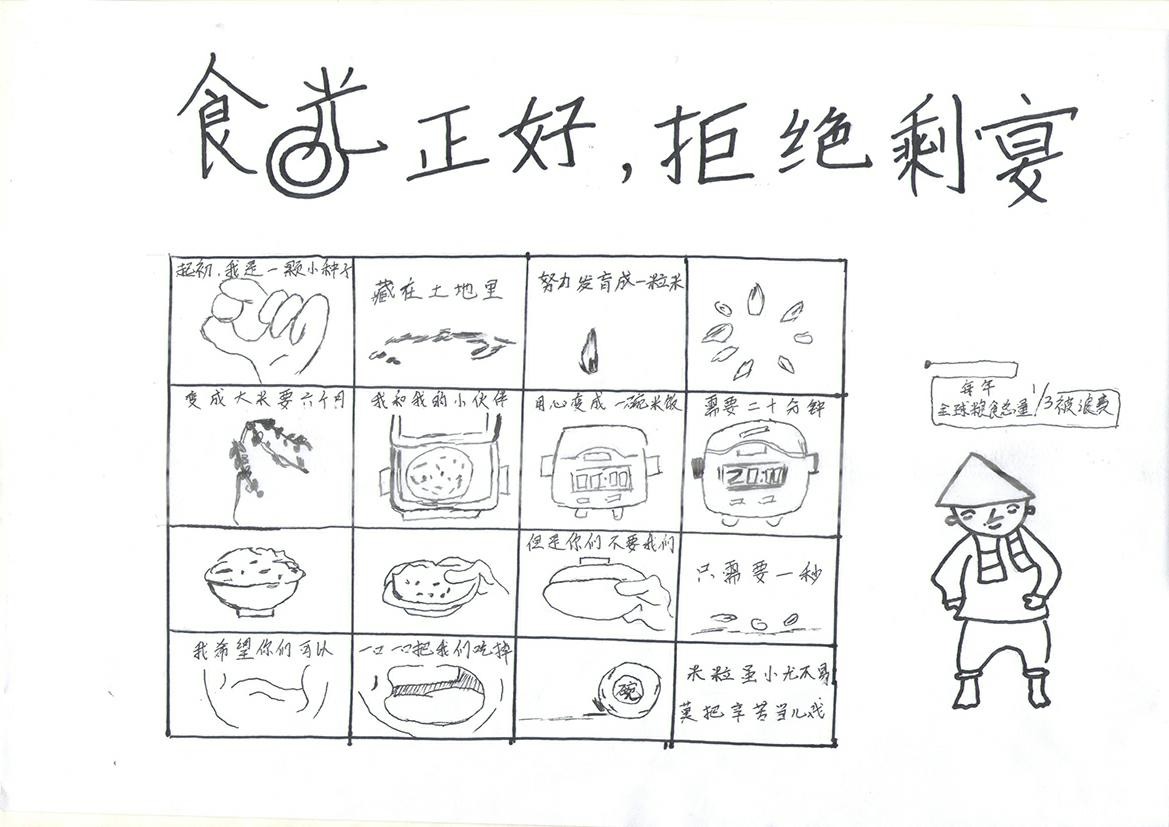 食光正好,拒绝剩宴
起初,我是一颗小种子
藏在土地里
努力发育成一粒米
变成大米要六个月
我和我的小伙伴
用心变成一碗米饭
需要二十分钟
00:00
20:00
但是你们不要我们
只需要一秒
我希望你们可以
一口一口把我们吃掉
碗
米粒虽小尤不易
莫把辛苦当儿戏
每年
全球粮食总量1/3被浪费